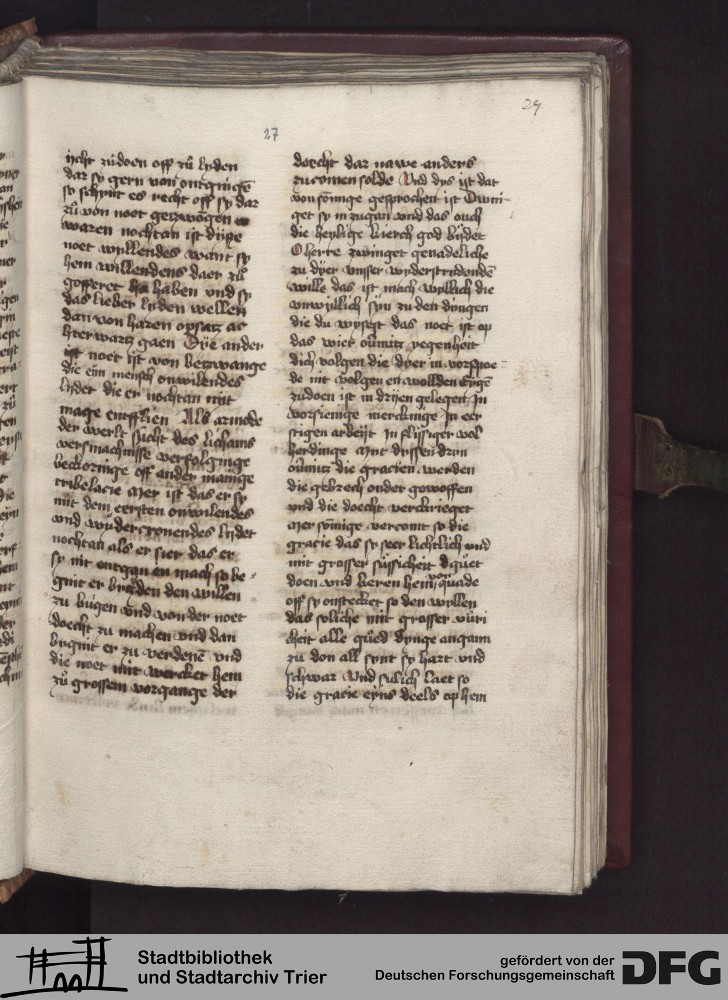 27
27
icht zů doen off zů lyden
dar sy gern von ontginge
so schynt es recht off sy dar
zů von noet getzwōgen
waren nochtan ist dijse
noet wyllendes want sy
hem willendens daer zů
gofferet haben vnd sy
das lieber lyden wellen
dan von haren opsatz ac
hterwartz gaen Dye ander
noet ist von betzwange
die ein mensch onwilendes
lydet die er nochtan nut
mage entfflien Als armode
der werlt sucht des lichams
versmachnisse verfolginge
beckoringe off ander manige
tribelacie Mer ist das er sy
mit dem eersten onwilendes
vnd wyderstrenendes lydet
nochtan als er siet das er
sy nit ontgan en mach so be-
gint er den willen
zu bugen vnd von der noet
doecht zu machen vnd dan
begint er zu verdenē vnd
die noet mit wercket hem
zů grossem vorgange der
doecht dar nawe anders
zu comen solde Vnd dys ist dat
von somige gesprochen ist Dwin-
get sy in zu gan vnd das ouch
die heylige kierch god bydet
O herre zwinget genadeliche
zu dyer vnsser wyderstrebendē
wille das ist mach wyllich die
vnwyllich syn zu den dyngen
die du wysest das noet ist op
das wiet ouͤmitz gegenheit
dich volgen die dyer in vorspoe-
de nit volgen en wollden Eynge
zu doen ist in dryen gelegen In
vorsienige merckinge In eer
stigen arbeyt In flissiger vol
herdinge Mit dyssen dryn
ouͤmitz die gracien werden
die gebrech onder gewoffen
vnd die doecht verckrieget
Mer somige vercomt so die
gracie das sy seer lichtlich vnd
mit grosser sussicheit d guet
doen vnd kieren hem von quade
off sy onstecket so den wyllen
das soliche mit grosser vuri
cheit alle gued dynge angann
zu don all synt sy hart vnd
schwar Vnd sulich laet so
die gracie eyns deels op hem
Stadtbibliothek
und Stadtarchiv Trier
gefördert von der
Deutschen Forschungsgemeinschaft
DFG